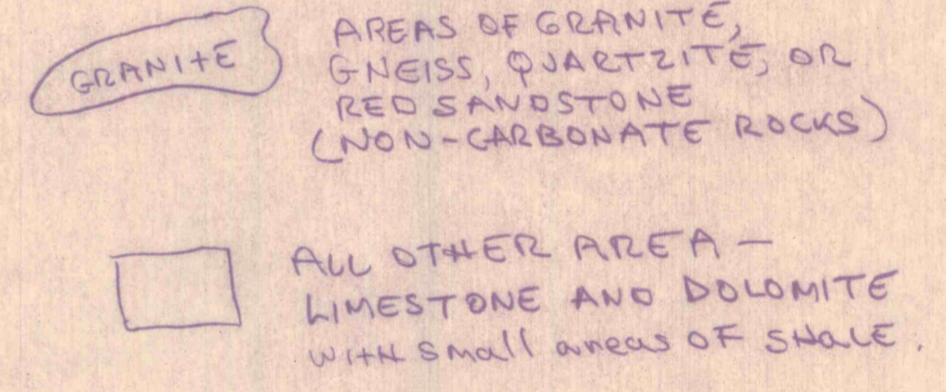 GRANITE
AREAS OF GRANITE,
GNEISS, QUARTZITE, OR
RED SANDSTONE
(NON-CARBONATE ROCKS)
ALL OTHER AREA -
LIMESTONE AND DOLOMITE
WITH small areas OF SHALE.